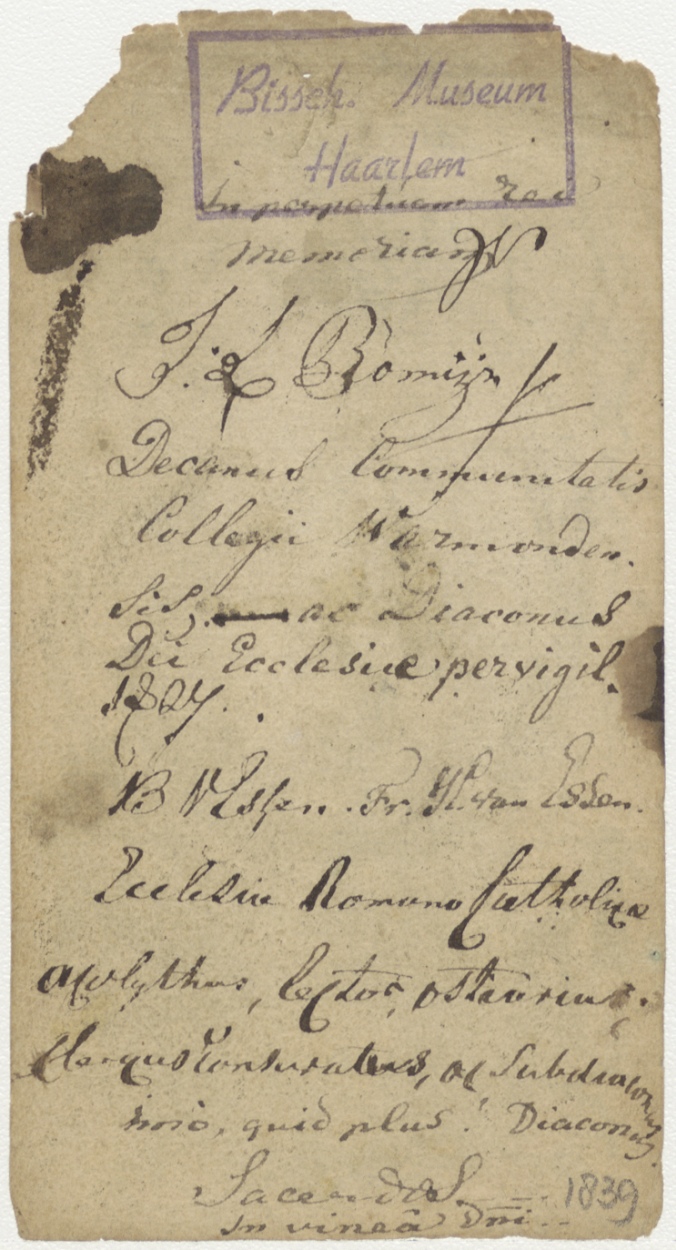 Bissch. Museum
Haarlem
In perpetuam rei
Memoriam
J: L Romijn
Decanus Communitatis
Collegii Warmonden.
sis, ac Diaconus
Dei Ecclesiae pervigil.
1827.
NB V Essen. Fr. H. van Essen.
Ecclesiae Romano Catholicae
acolythus, lector, ostiarius,
Clericus tonsuratus, ac Subdiaconus
imo, quid plus! Diaconus.
Sacerdos.
in vineâ Dni
1839